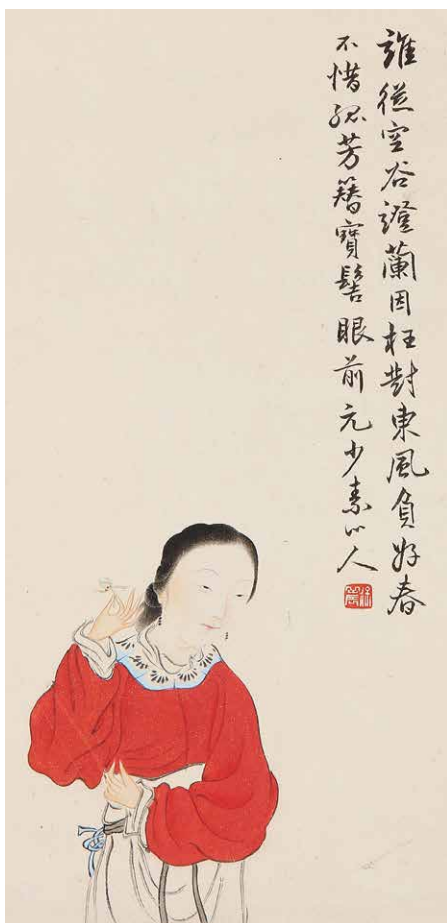 誰從空谷證蘭因枉對東風負好春
不惜孤芳簪寶髻眼前元少素心人